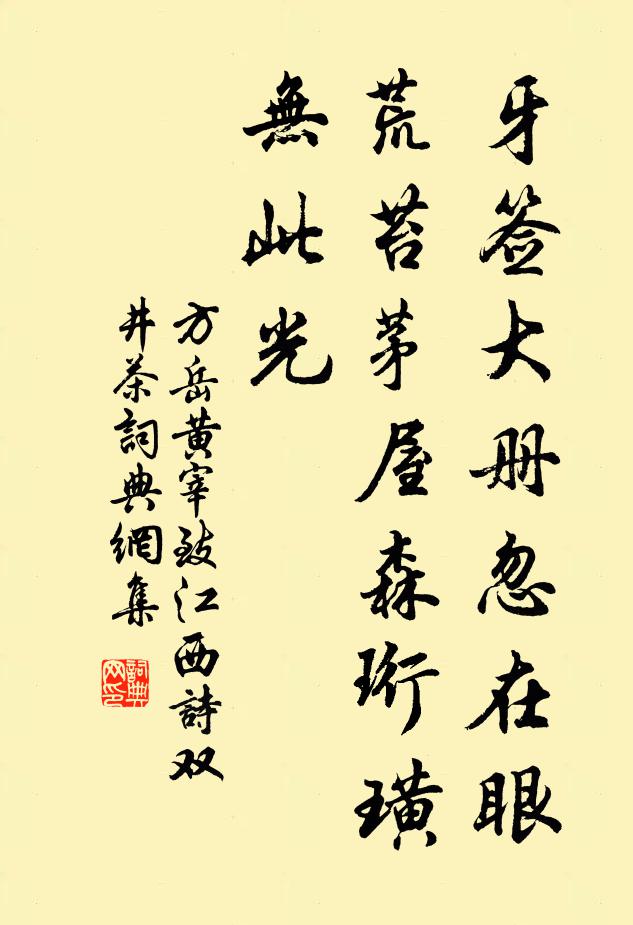 牙签大册忽在眼
荒苔茅屋森珩璜
無此光
方岳黄宰致江西詩双
井茶詞典網集
詞典
网印